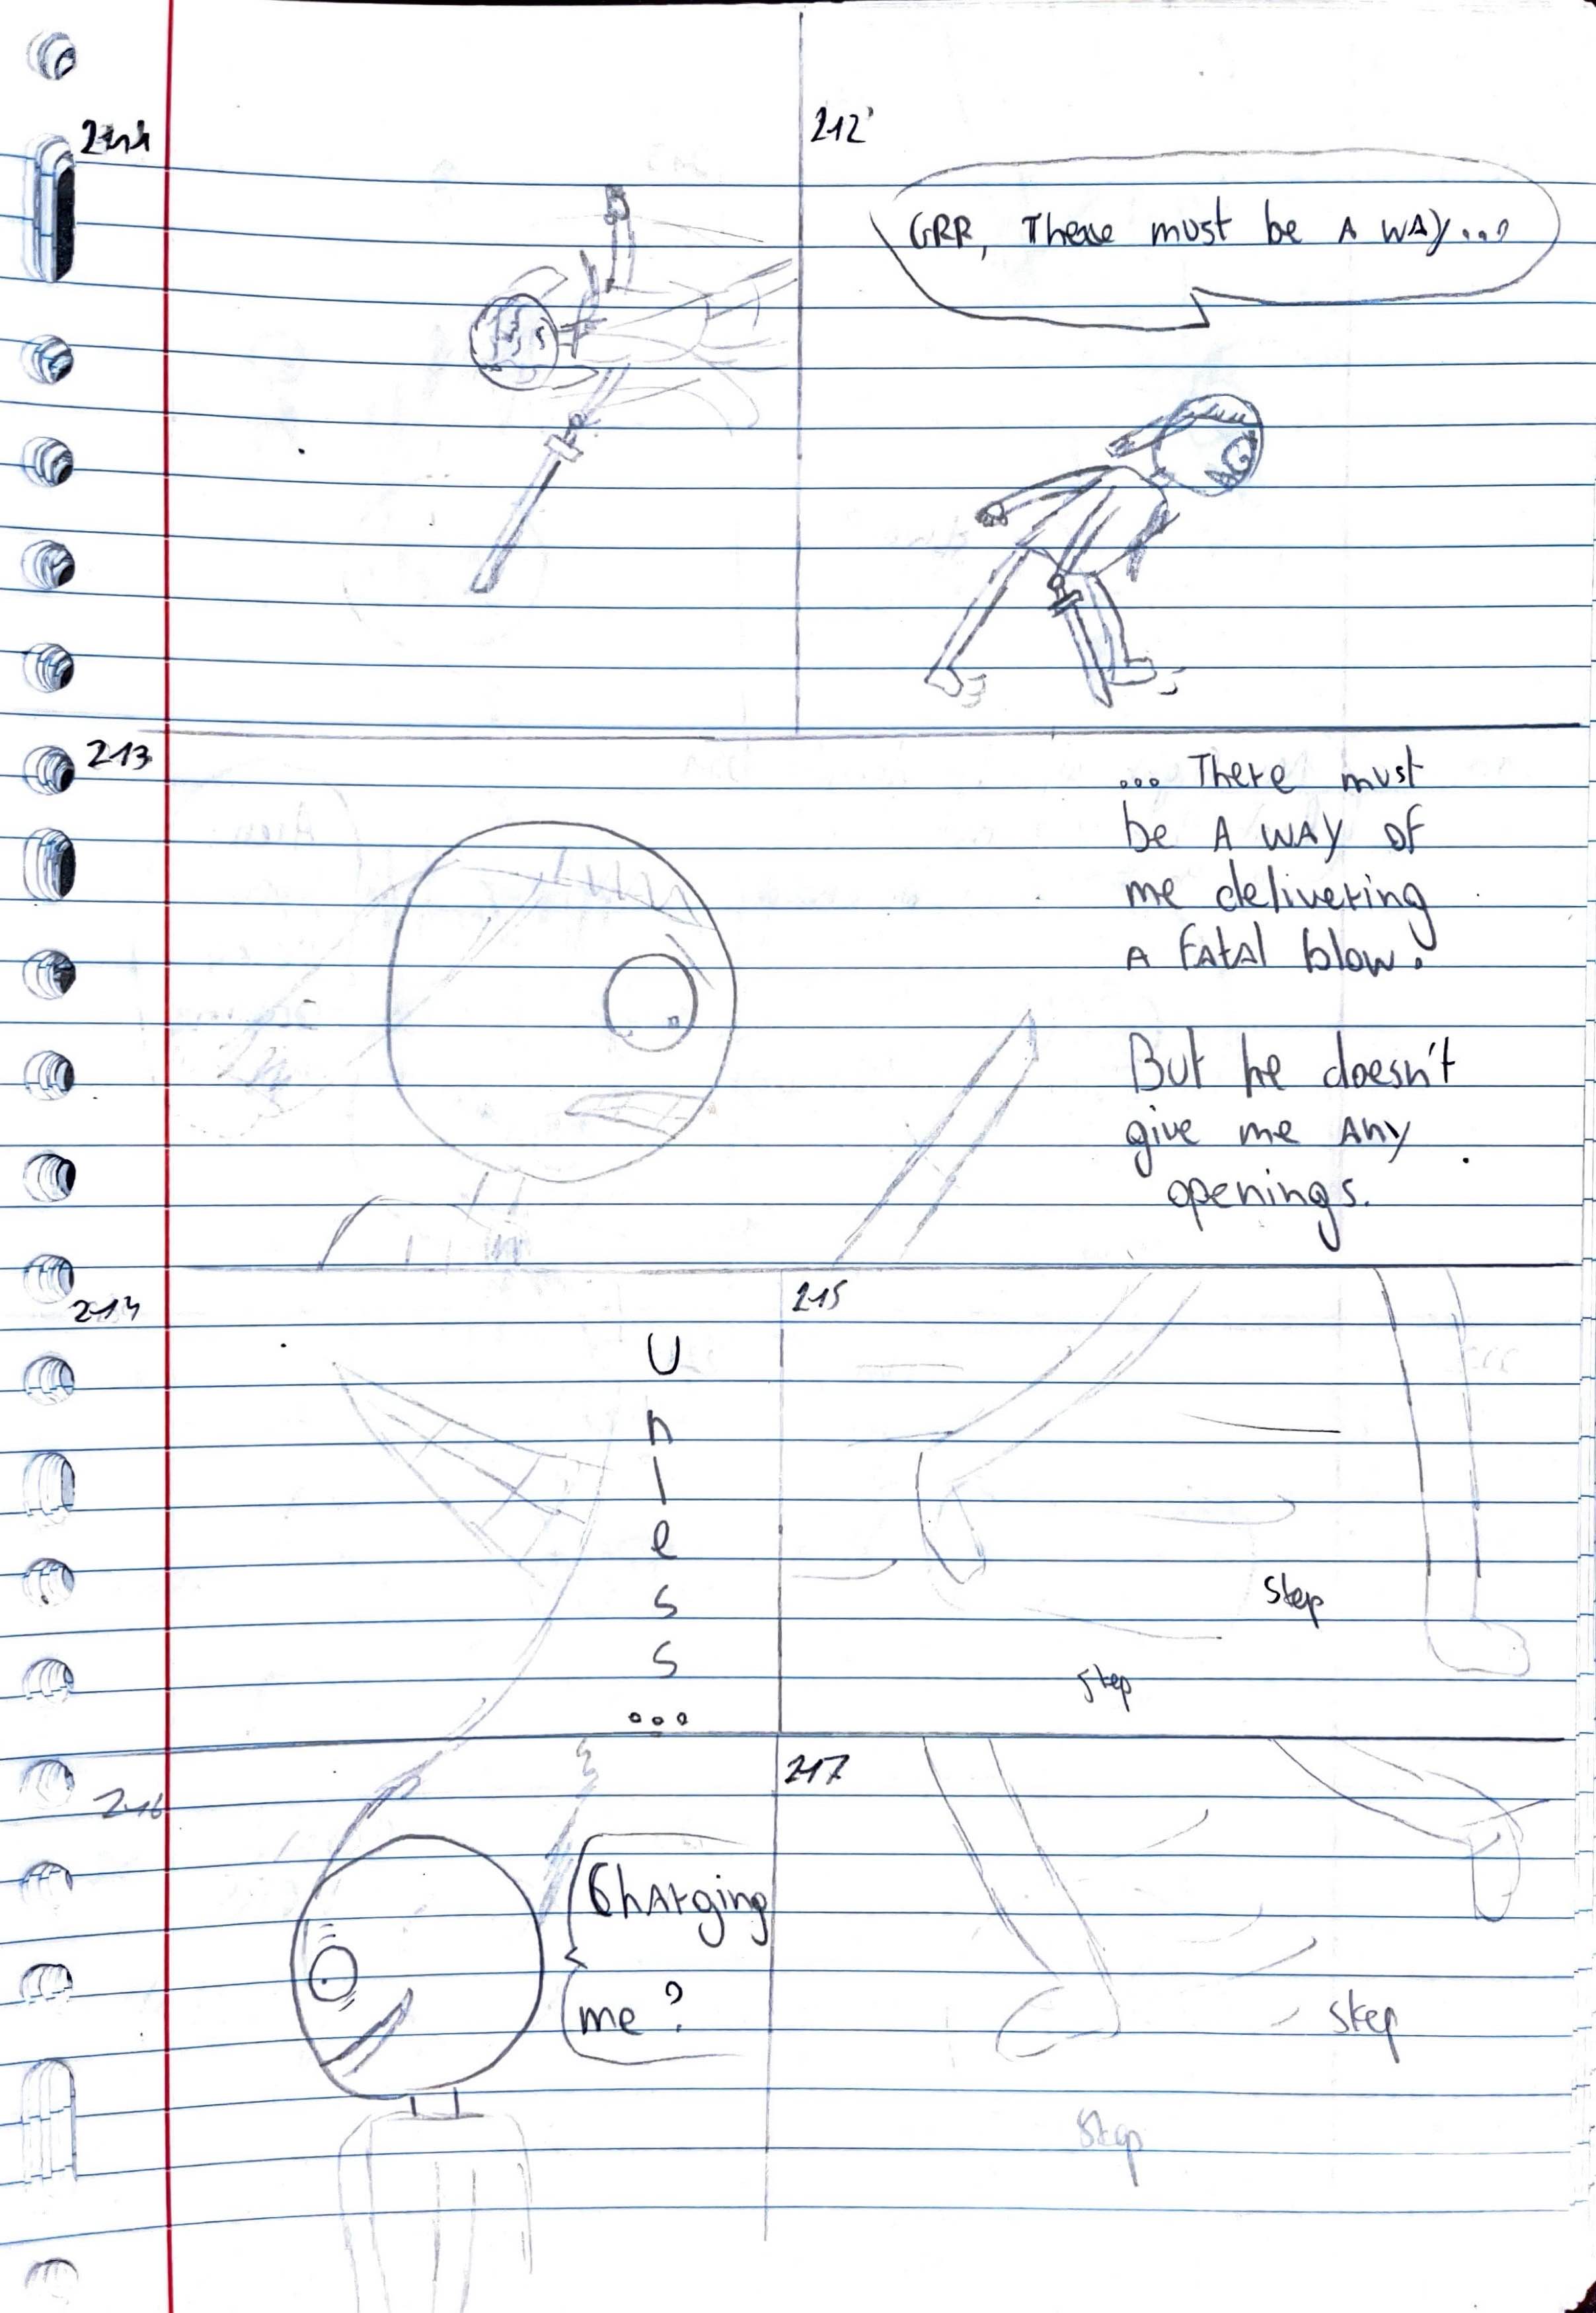 211
212
GRR, There must be A WAY...
213
... There must
be A WAY OF
me delivering
A FATAL blow.
But he doesn't
give me Any
openings.
214
U
n
l
e
s
s
...
215
step
step
216
ChArging
me?
217
step
step